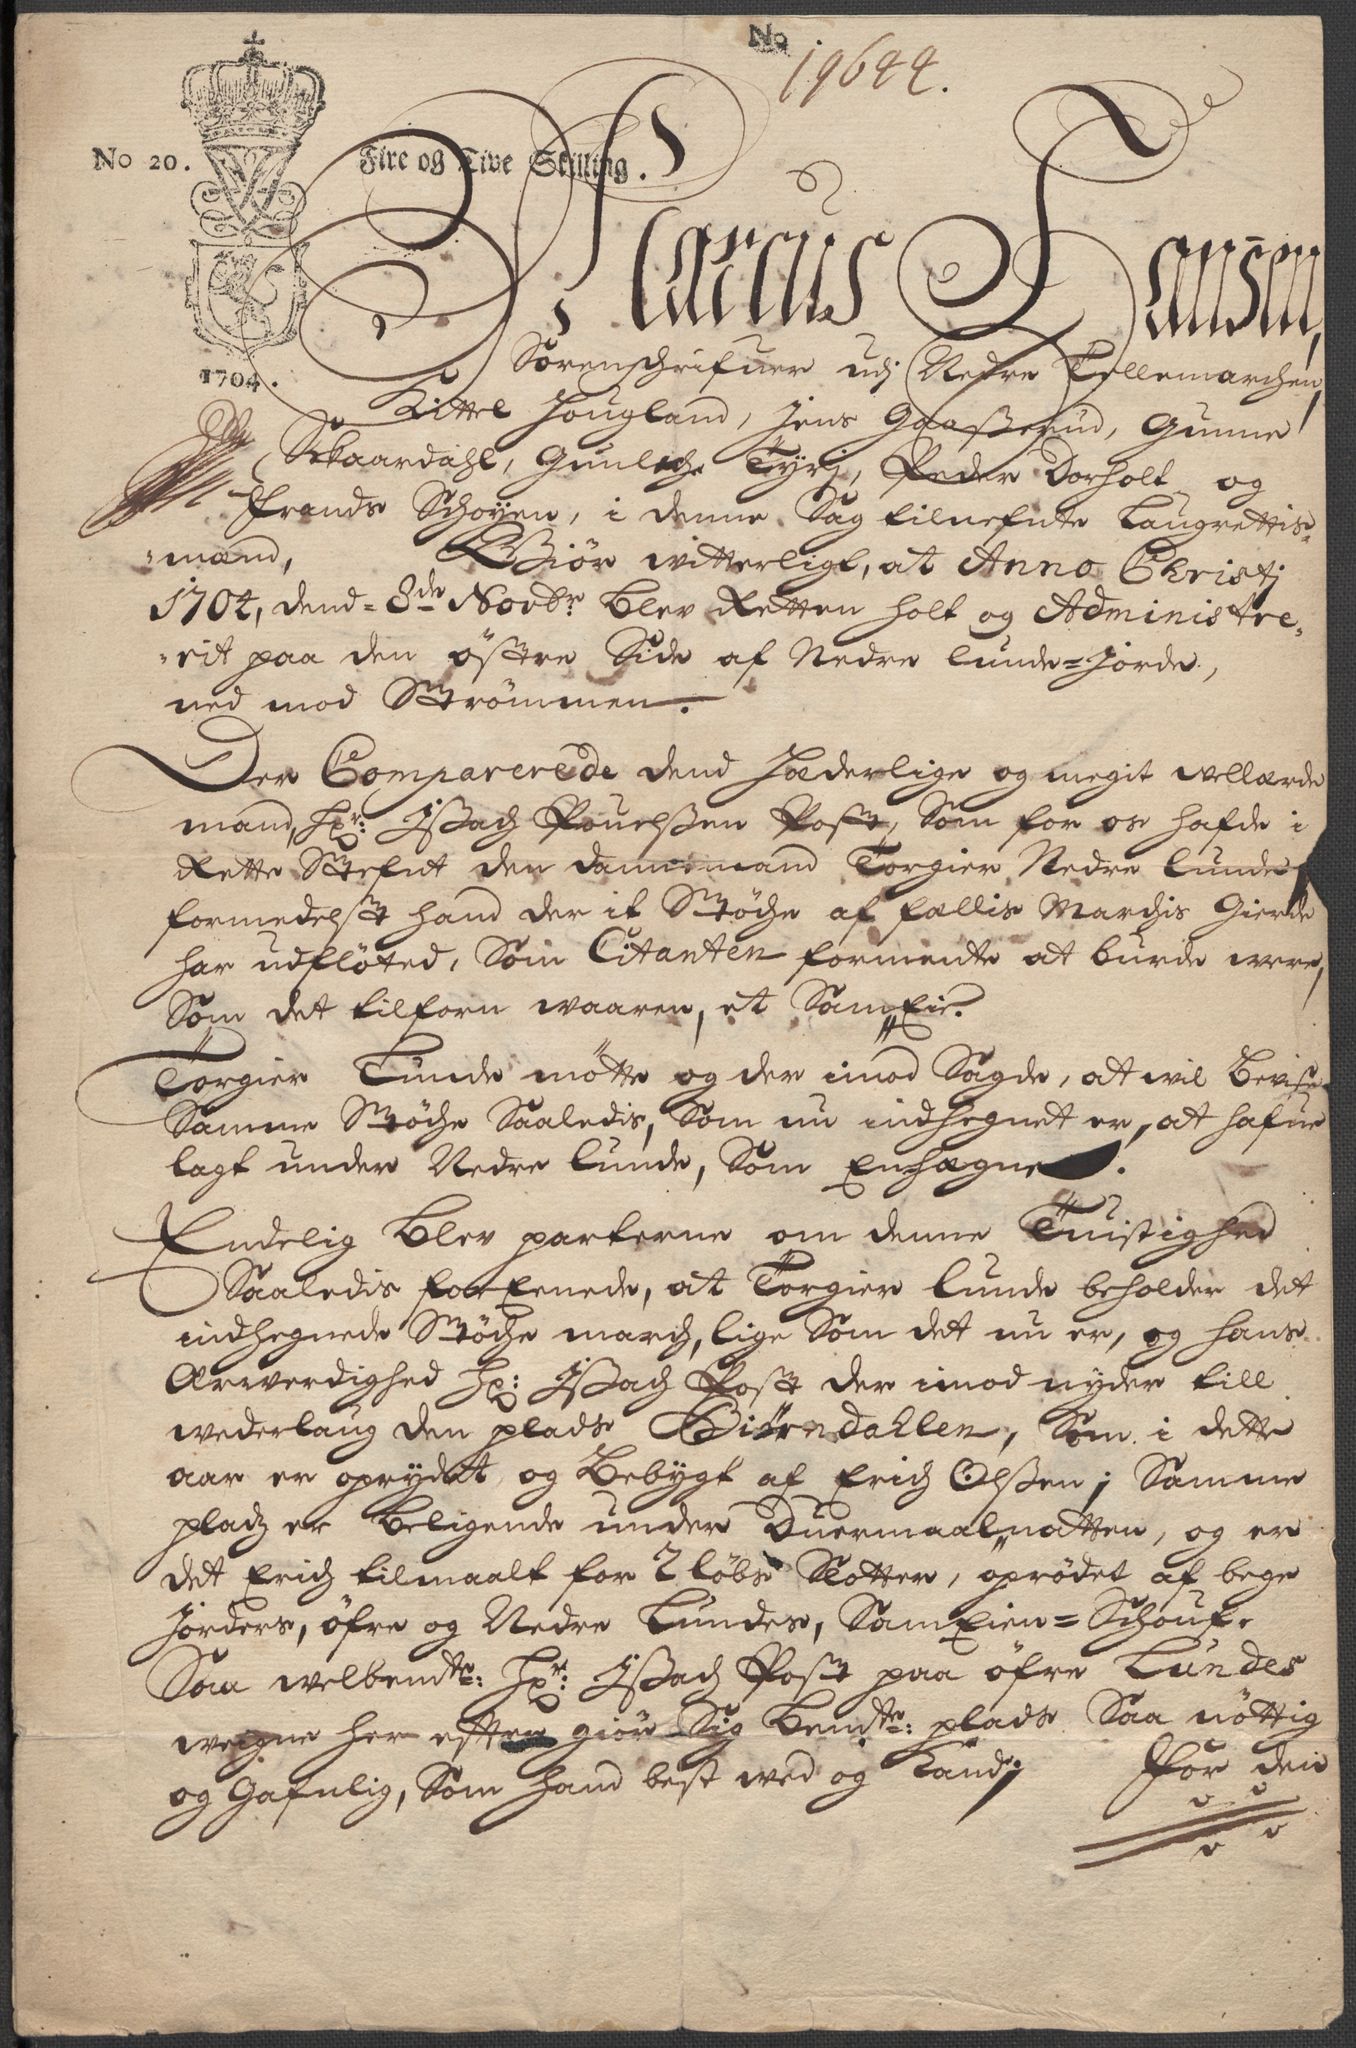 No
19644.
No 20. Fire og Tive Skilling.
Marcus Hansen,
1704.
Sorenschrifuer udj Nedre Tellemarchen,
Kittel Hougland, Jens Gaasserud, Gunne
Skaardahl, Gunlech Tyrj, Peder Dorholt og
Frands Schoyen, i denne Sag tilnefnte Laugrettis-
mænd, Giør witterligt, at Anno Christj
1704, dend 8de Novbr blev Retten holt og Administre-
rit paa den östre Side af Nedre Lunde-Jorde,
ned mod Strömmen.
Der Comparerede dend Hæderlige og megit wellærde
mand, Hr: Issach Pouelssen Post, Som for os hafde i
Rette Stefnt den dannemand Torgier Nedre Lunde,
formedelst hand der it Støche af fællis Marchis Gierde
har udfløted, Som Citanten formente at burde were,
Som det tilforn waaren, et Sam Eie.
Torgier Lunde mötte og der imod Sagde, at wil bevise
Samme Støche Saaledis, Som nu indhegnet er, at hafue
lagt under Nedre Lunde, Som Enhægne.
Endelig blev parterne om denne Tuistighed
Saaledis forEenede, at Torgier Lunde beholder det
indhegnede Støche march, lige Som det nu er, og hans
Ærwerdighed Hr: Issach Post der imod nyder till
wederlaug den plads Biörndahlen, Som i dette
aar er oprydet og Bebygt af Erich Olssen; Samme
pladz er beligende under Duermaalnatten, og er
det Erich tilmaalt for 2 löbs Slotter, oprödet af bege
Jorders, öfre og Nedre Lundes, Sam Eien-Schouf.
Saa welbemte: Hr: Issach Post paa öfre Lundes
weigne her efter giör Sig bemte: plads Saa nöttig
og Gafnlig, Som hand best wed og Kand;
For den